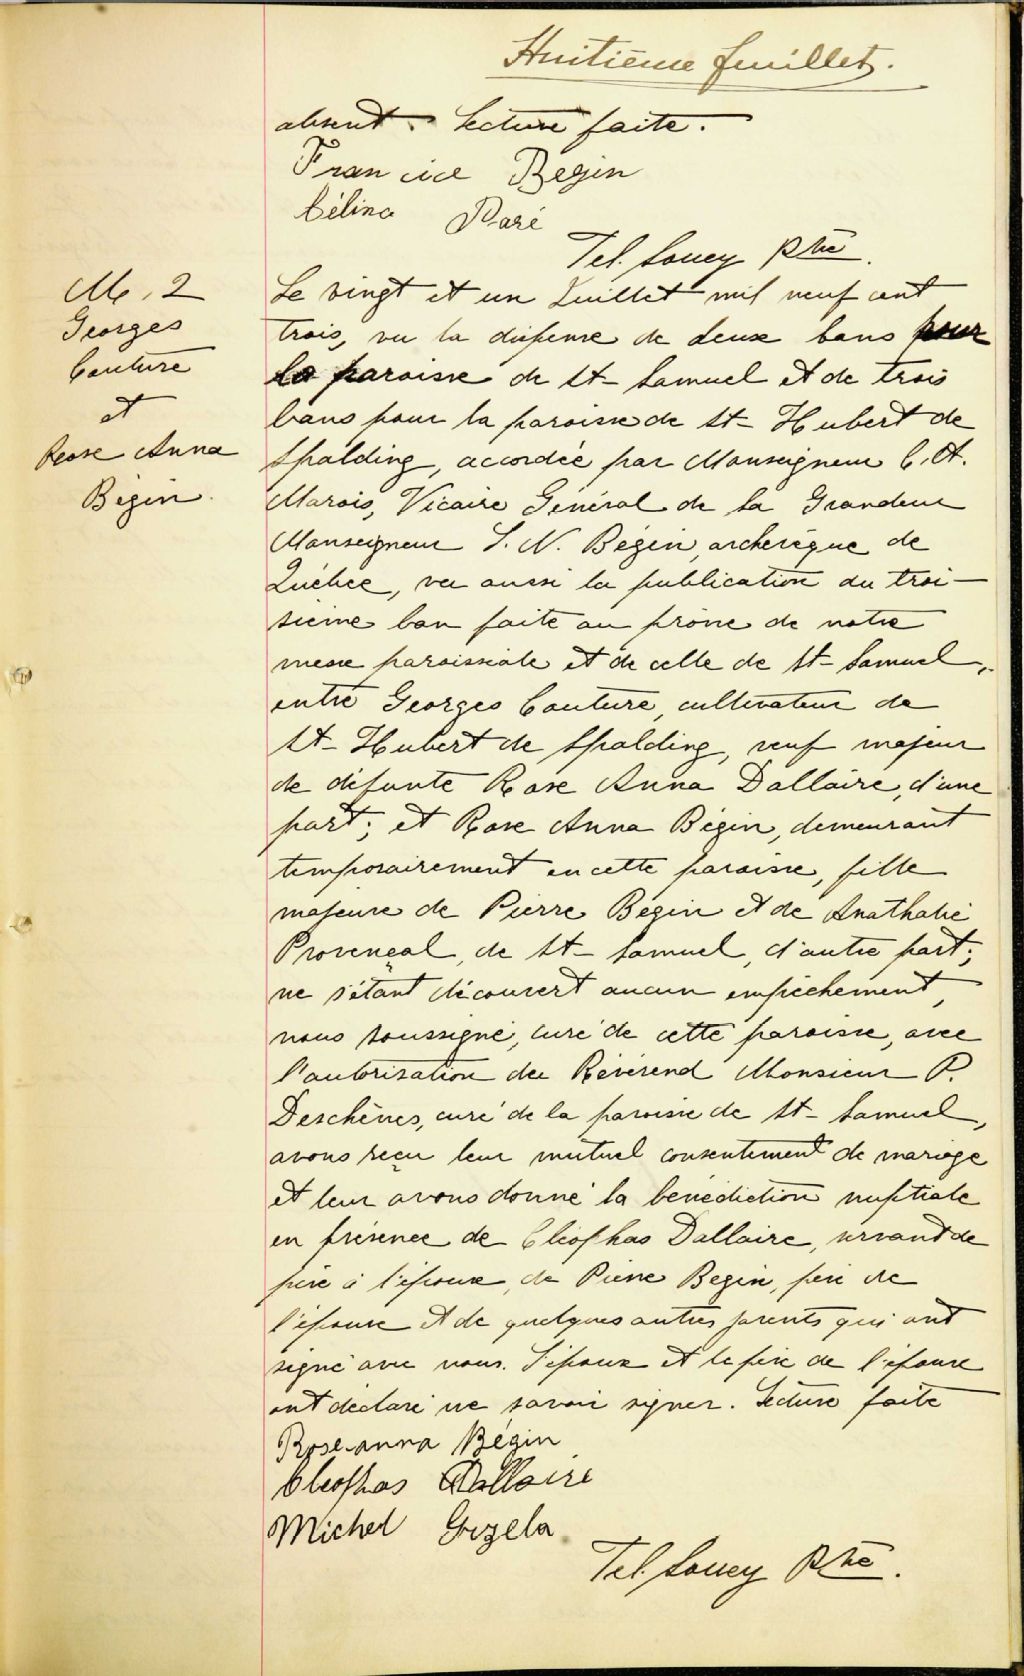 Huitième feuillet.
absent. Lecture faite.
Francice Begin
Célina Paré
Tel. Soucy Ptre.
M. 2
Georges
Couture
et
Rose Anna
Bégin.
Le vingt et un Juillet mil neuf cent
trois, vu la dispense de deux bans pour
la paroisse de St-Samuel et de trois
bans pour la paroisse de St-Hubert de
Spalding, accordée par Monseigneur C. A.
Marois, Vicaire Général de Sa Grandeur
Monseigneur L. N. Bégin, archevêque de
Québec, vu aussi la publication du troi-
sième ban faite au prône de notre
messe paroissiale et de celle de St-Samuel,
entre Georges Couture, cultivateur de
St-Hubert de Spalding, veuf majeur
de défunte Rose Anna Dallaire, d'une
part; et Rose Anna Bégin, demeurant
temporairement en cette paroisse, fille
majeure de Pierre Begin et de Anathalie
Provençal, de St-Samuel, d'autre part;
ne s'étant découvert aucun empêchement,
nous soussigné, curé de cette paroisse, avec
l'autorisation du Révérend Monsieur P.
Deschênes, curé de la paroisse de St-Samuel,
avons reçu leur mutuel consentement de mariage
et leur avons donné la bénédiction nuptiale
en présence de Cléophas Dallaire, servant de
père à l'époux, de Pierre Begin, père de
l'épouse et de quelques autres parents qui ont
signé avec nous. L'époux et le père de l'épouse
ont déclaré ne savoir signer. Lecture faite
Rose-anna Bégin
Cleophas Dallaire
Michel Grzela
Tel. Soucy Ptre.